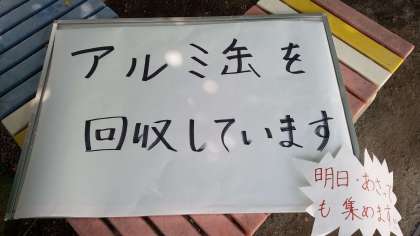 アルミ缶を
回収しています
明日・あさって
も集めます